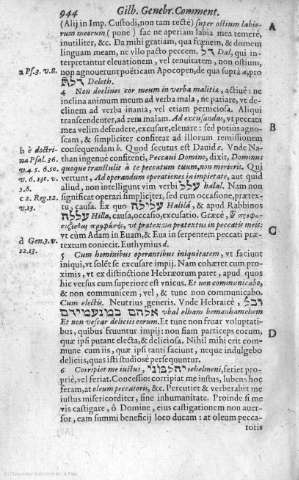 944 Gilb. Genebr. Comment.
(Alij in Imp. Custodi, non tam tectè) super ostium labiorum
meorum (pone) fac ne aperiam labia mea temerè,
inutiliter, &c. Da mihi gratiam, qua frænem, & domem
linguam meam, ne vllo pacto peccem. דל Dal, qui
interpretantur eleuationem, vel tenuitatem, non ostium,
non agnouerunt poëticam Apocopen, de qua supra a, pro
a Psal. 3. v. 8.
דלת Deleth.
4 Non declines cor meum in verba malitiæ, actiuè: ne
inclina animum meum ad verba mala, ne patiare, vt declinem
ad verba inania, vel etiam perniciosa. Aliqui
transcendenter, ad rem malam. Ad excusandas, vt peccata
mea velim defendere, excusare, eleuare: sed potius agnoscam,
& simpliciter confitear ad illorum remissionem
b è doctrina Psal. 36.
v. 4. 5. & 50.
v. 6.
2. 6.
c 2. Reg. 12.
v. 13.
consequendam b. Quod secutus est Dauid c. Vnde Nathan
ingenuè confitenti, Peccaui Domino, dixit, Dominus
quoque transtulit à te peccatum tuum, non morieris. Qui
vertunt, Ad operandum operationes in impietate, aut quid
aliud, non intelligunt vim verbi עלל halal. Nam non
significat operari simpliciter, sed cum occasione, prætextu,
causa. Ex quo עלילה Halilá, & apud Rabbinos
עלה Hilla, causa, occasio, excusatio. Græcè,
vt prætexam prætextus in peccatis meis:
d Gen. 3. v.
12. 13.
vt cùm Adam in Euam, & Eua in serpentem peccati prætextum
coniecit. Euthymius d.
5 Cum hominibus operantibus iniquitatem, vt faciunt
iniqui, vt solet se excusare impij. Nam cohæret cum proximis,
vt ex distinctione Hebræorum patet, apud quos
hic versus cum superiore est vnicus. Et non communicabo,
& non communicem, vel, & tunc non communicabo.
Cum electis. Neutrius generis. Vnde Hebraicè,
ובל אלחם במנעמיהם vbal elham bemanhamehem
Et non vescar deliciis eorum. Et tunc non fruar voluptatibus,
quibus fruuntur impij: non fiam particeps eorum,
quæ ipsi putant electa, & deliciosa. Nihil mihi erit commune
cum iis, quæ ipsi tanti faciunt, atque indulgebo
deliciis, quas isti studiosè persequuntur.
6 Corripiet me iustus, יהלמני iehelmeni, feriet propriè,
vel feriat. Concessio: corripiat me iustus, lubens hoc
feram, at oleum peccatoris, &c. Percutiet & verberabit me
iustus misericorditer, sine inhumanitate. Proinde si me
vis castigare, ô Domine, eius castigationem non auersor,
eam summi beneficij loco ducam: at oleum pecca-
toris
A
B
C
D